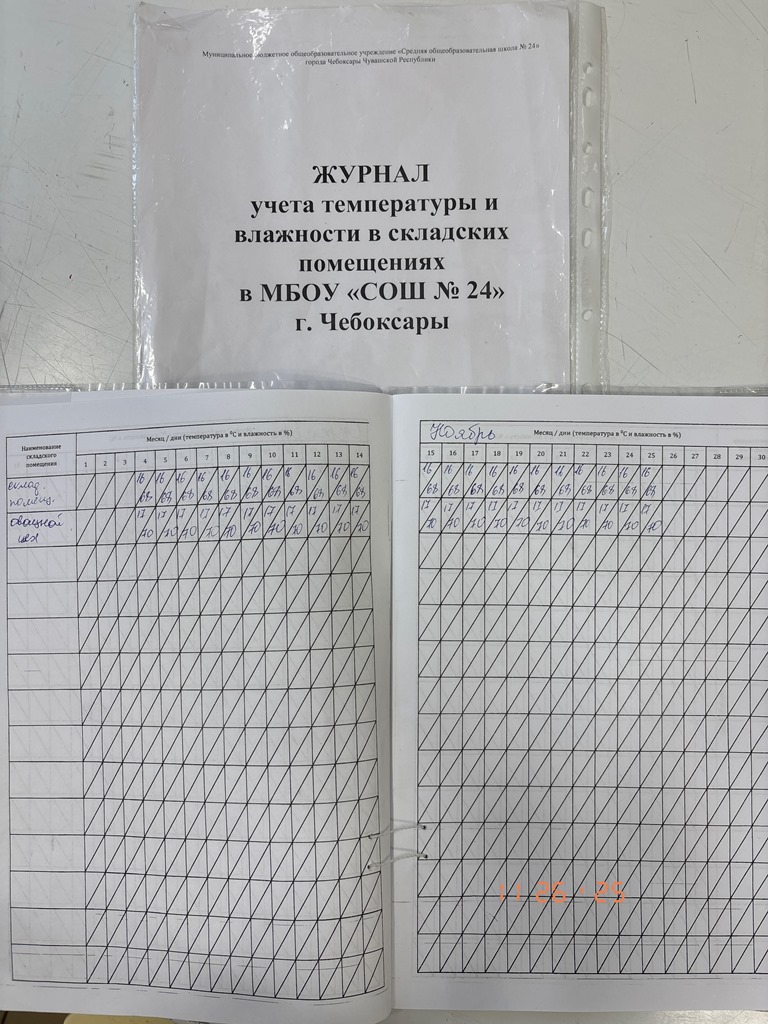 Муниципальное бюджетное общеобразовательное учреждение «Средняя общеобразовательная школа № 24»
города Чебоксары Чувашской Республики
ЖУРНАЛ
учета температуры и
влажности в складских
помещениях
в МБОУ «СОШ № 24»
г. Чебоксары
Наименование
складского
помещения
Месяц / дни (температура в ⁰С и влажность в %)
1 2 3 4 5 6 7 8 9 10 11 12 13 14
склад. 16 16 16 16 16 16 16 16 16 16 16
помещ. 68 68 68 68 68 68 68 68 68 68 68
овощной 17 17 17 17 17 17 17 17 17 17 17
цех 70 70 70 70 70 70 70 70 70 70 70
Ноябрь Месяц / дни (температура в ⁰С и влажность в %)
15 16 17 18 19 20 21 22 23 24 25 26 27 28 29 30
16 16 16 16 16 16 16 16 16 16 16
68 68 68 68 68 68 68 68 68 68 68
17 17 17 17 17 17 17 17 17 17 17
70 70 70 70 70 70 70 70 70 70 70
11 26 '25